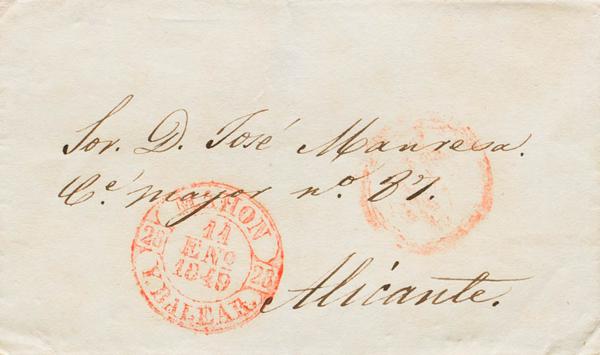 Sor. D. José Manresa.
Ce. mayor no. 37.
Alicante.
MAHON
11
ENO
1849
28 28
I. BALEAR.